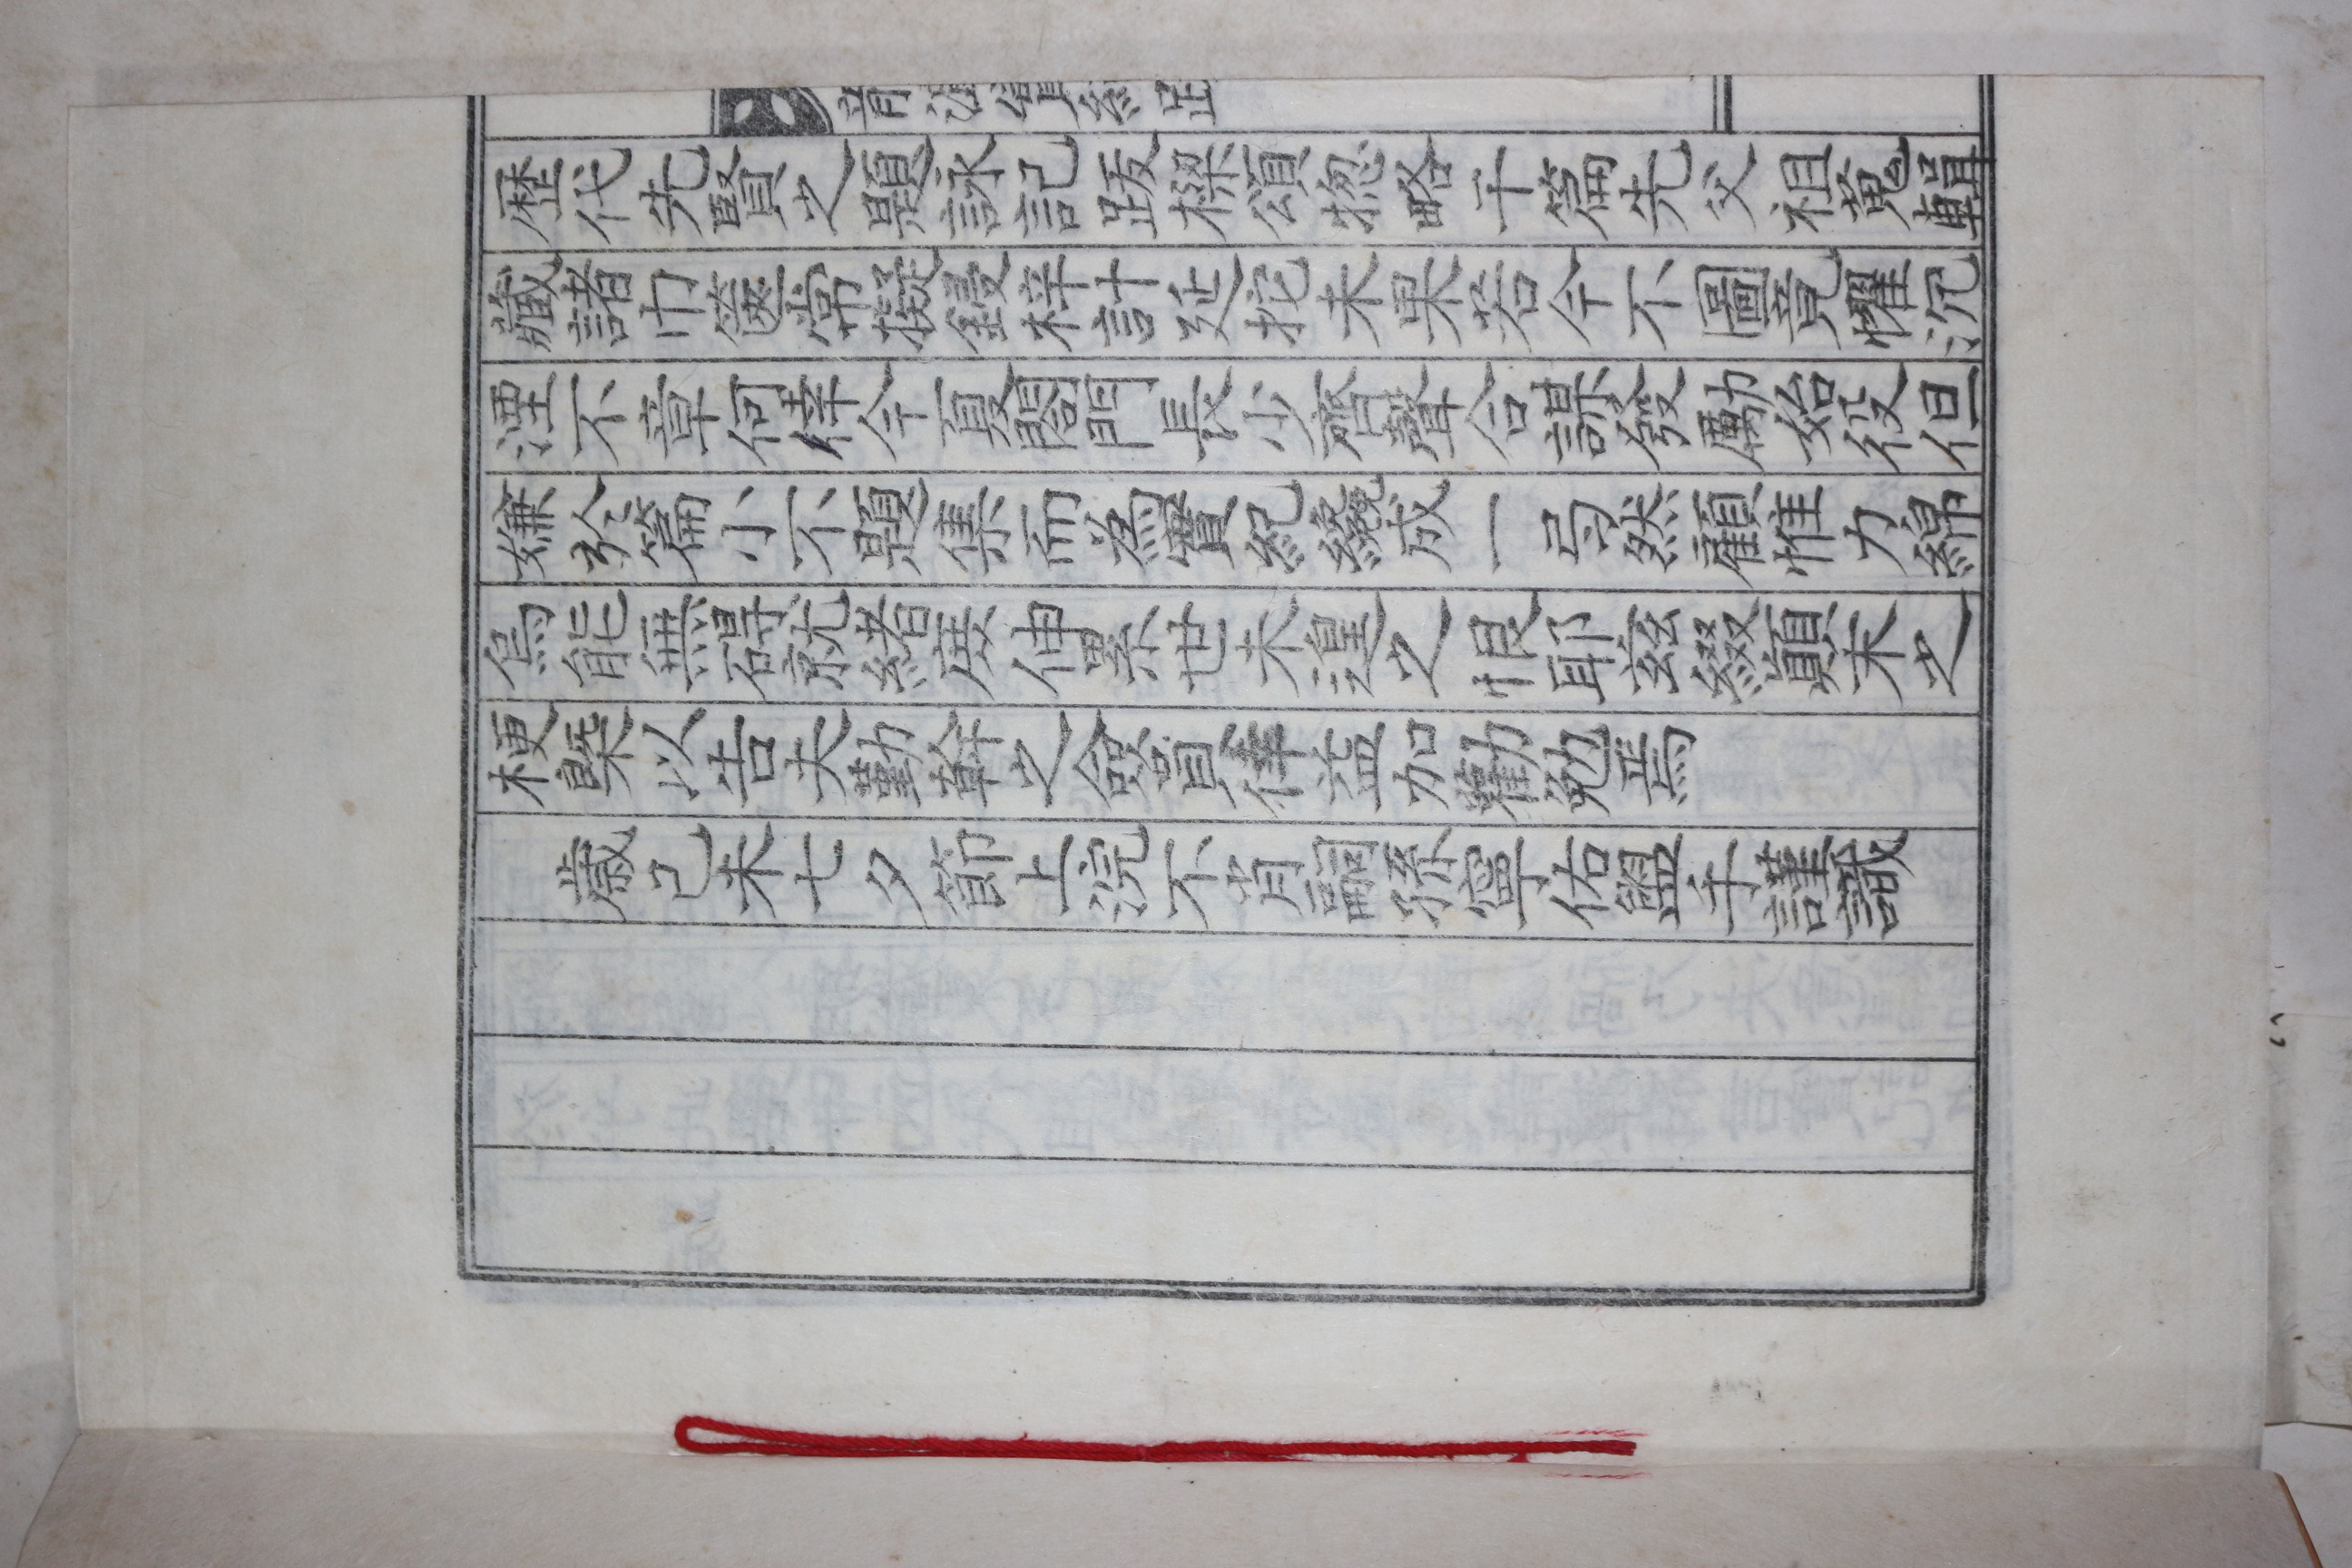 歷代先賢之題詠記跋樑頌惣略干篇先父祖蒐輯
藏諸巾篋常擬鋟梓計延拕未果若今不圖竟懼沉
湮不章何倖今夏閤門長少齊聲合謀發勵始役但
嫌於篇小不題集而為實紀纔成一弓然顧惟力綿
烏能無碍就緖庶伸累世未遑之恨耶玆綴顚末之
梗槩以告夫勤幹之僉員倖益加勸勉焉
歲己未七夕節上浣不肖嗣孫寧佑盥手謹識